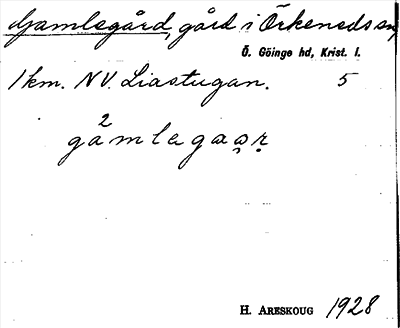 Gamlegård, gård i Örkeneds sn,
Ö. Göinge hd, Krist. l.
1 km. NV. Liastugan. 5
2
gåmlegaar
H. ARESKOUG 1928